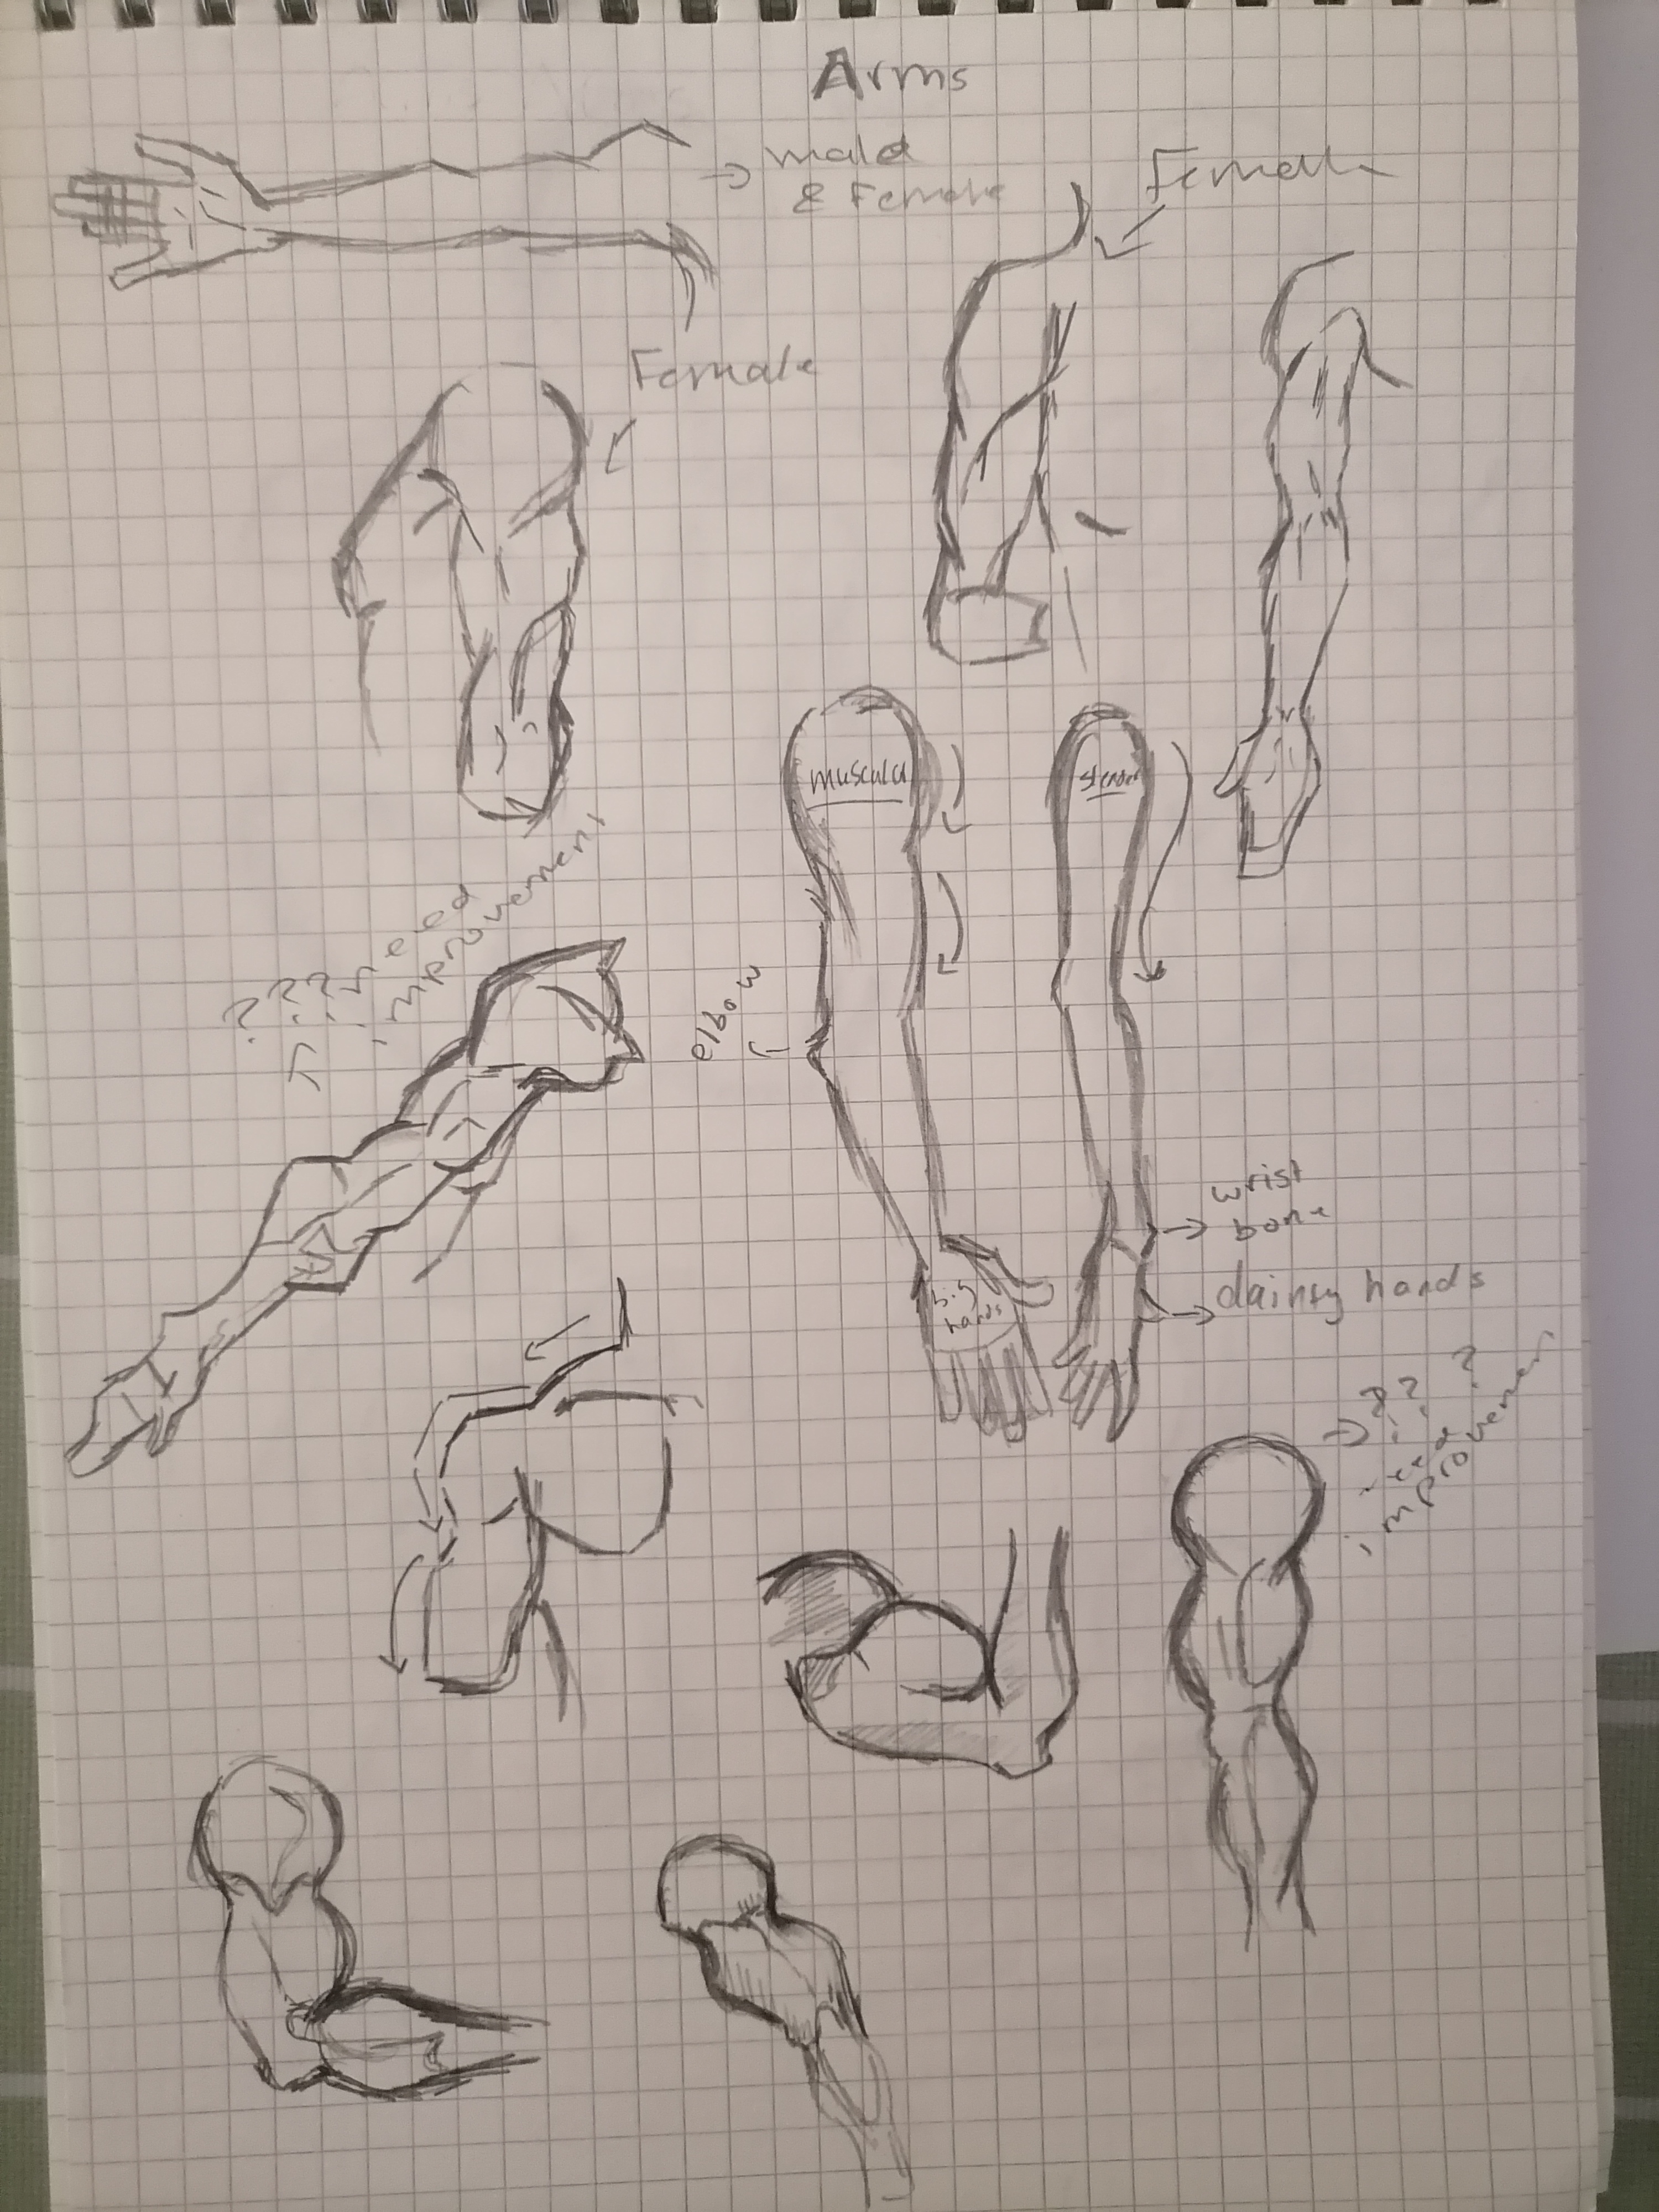 Arms
male
& Female
Female
Female
muscular
slender
??? need
improvement
elbow
wrist
bone
dainty hands
big
hands
??? need
improvement